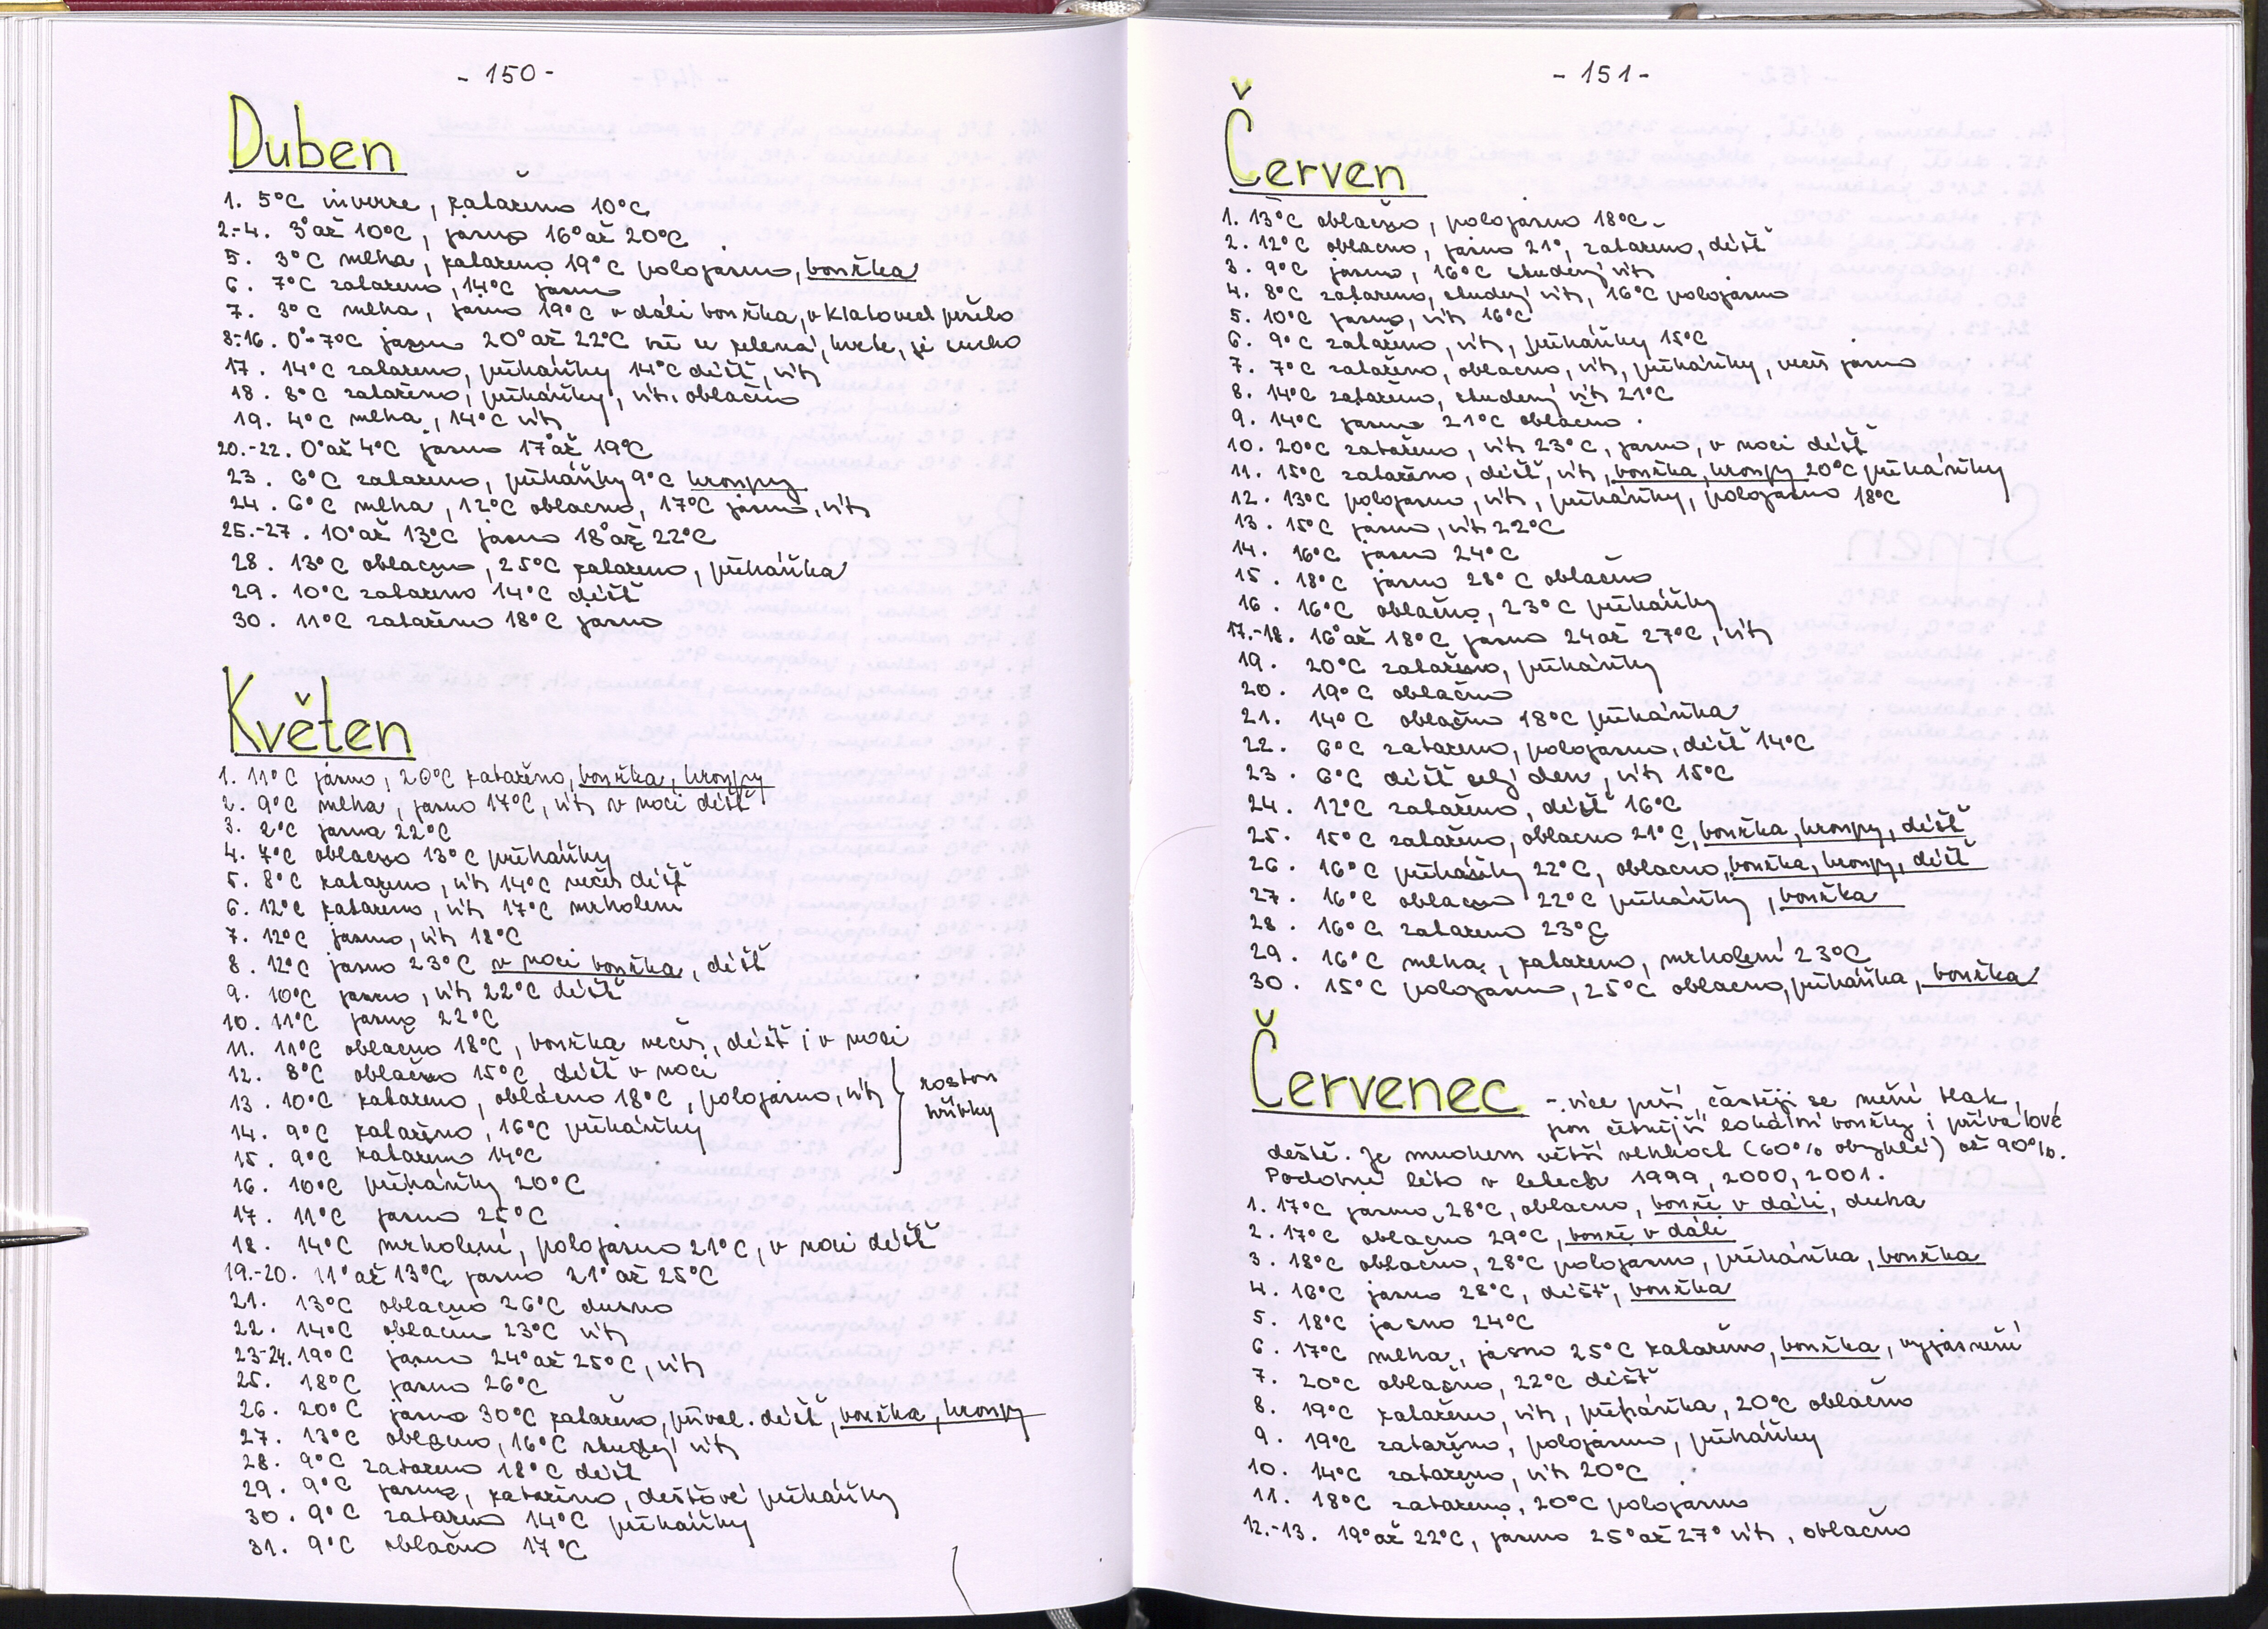 - 150 -
Duben
1. 5°C inverze, zataženo 10°C
2.-4. 3° až 10°C, jasno 16° až 20°C
5. 3°C mlha, zataženo 19°C polojasno, bouřka
6. 7°C zataženo, 14°C jasno
7. 3°C mlha, jasno 19°C v dáli bouřka, v Klatovech pršelo
8.-16. 0°-7°C jasno 20° až 22°C vše se zelená, kvete, je sucho
17. 14°C zataženo, přeháňky 14°C déšť, vítr
18. 8°C zataženo, přeháňky, vítr, oblačno
19. 4°C mlha, 14°C vítr
20.-22. 0° až 4°C jasno 17° až 19°C
23. 6°C zataženo, přeháňky 9°C kroupy
24. 6°C mlha, 12°C oblačno, 17°C jasno, vítr
25.-27. 10° až 13°C jasno 18° až 22°C
28. 13°C oblačno, 25°C zataženo, přeháňka
29. 10°C zataženo 14°C déšť
30. 11°C zataženo 18°C jasno
Květen
1. 11°C jasno, 20°C zataženo, bouřka, kroupy
2. 9°C mlha, jasno 17°C, vítr v noci déšť
3. 2°C jasno 22°C
4. 7°C oblačno 13°C přeháňky
5. 8°C zataženo, vítr 14°C večer déšť
6. 12°C zataženo, vítr 17°C mrholení
7. 12°C jasno, vítr 18°C
8. 12°C jasno 23°C v noci bouřka, déšť
9. 10°C jasno, vítr 22°C déšť
10. 11°C jasno 22°C
11. 11°C oblačno 18°C, bouřka večer, déšť i v noci
12. 8°C oblačno 15°C déšť v noci
13. 10°C zataženo, oblačno 18°C, polojasno, vítr
14. 9°C zataženo, 16°C přeháňky
15. 9°C zataženo 14°C
rostou
hřibky
16. 10°C přeháňky 20°C
17. 11°C jasno 25°C
18. 14°C mrholení, polojasno 21°C, v noci déšť
19.-20. 11° až 13°C jasno 21° až 25°C
21. 13°C oblačno 26°C dusno
22. 14°C oblačno 23°C vítr
23-24. 19°C jasno 24° až 25°C, vítr
25. 18°C jasno 26°C
26. 20°C jasno 30°C zataženo, příval. déšť, bouřka, kroupy
27. 13°C oblačno, 16°C studený vítr
28. 9°C zataženo 18°C déšť
29. 9°C jasno, zataženo, dešťové přeháňky
30. 9°C zataženo 14°C přeháňky
31. 9°C oblačno 17°C
- 151 -
Červen
1. 13°C oblačno, polojasno 18°C
2. 12°C oblačno, jasno 21°, zataženo, déšť
3. 9°C jasno, 16°C studený vítr
4. 8°C zataženo, studený vítr, 16°C polojasno
5. 10°C jasno, vítr 16°C
6. 9°C zataženo, vítr, přeháňky 15°C
7. 7°C zataženo, oblačno, vítr, přeháňky, večer jasno
8. 14°C zataženo, studený vítr 21°C
9. 14°C jasno 21°C oblačno.
10. 20°C zataženo, vítr 23°C, jasno, v noci déšť
11. 15°C zataženo, déšť, vítr, bouřka, kroupy 20°C přeháňky
12. 13°C polojasno, vítr, přeháňky, polojasno 18°C
13. 15°C jasno, vítr 22°C
14. 16°C jasno 24°C
15. 18°C jasno 28°C oblačno
16. 16°C oblačno, 23°C přeháňky
17.-18. 16° až 18°C jasno 24 až 27°C, vítr
19. 20°C zataženo, přeháňky
20. 19°C oblačno
21. 14°C oblačno 18°C přeháňka
22. 6°C zataženo, polojasno, déšť 14°C
23. 6°C déšť celý den, vítr 15°C
24. 12°C zataženo, déšť 16°C
25. 15°C zataženo, oblačno 21°C, bouřka, kroupy, déšť
26. 16°C přeháňky 22°C, oblačno, bouřka, kroupy, déšť
27. 16°C oblačno 22°C přeháňky, bouřka
28. 16°C zataženo 23°C
29. 16°C mlha, zataženo, mrholení 23°C
30. 15°C polojasno, 25°C oblačno, přeháňka, bouřka
Červenec - více prší, častěji se mění tlak,
jsou četnější lokální bouřky i přívalové
deště. Je mnohem větší vlhkost (60% obvyklé) až 90%.
Podobné léto v letech 1999, 2000, 2001.
1. 17°C jasno, 28°C, oblačno, bouře v dáli, duha
2. 17°C oblačno 29°C, bouře v dáli
3. 18°C oblačno, 28°C polojasno, přeháňka, bouřka
4. 16°C jasno 28°C, déšť, bouřka
5. 18°C jasno 24°C
6. 17°C mlha, jasno 25°C zataženo, bouřka, vyjasnění
7. 20°C oblačno, 22°C déšť
8. 19°C zataženo, vítr, přeháňka, 20°C oblačno
9. 19°C zataženo, polojasno, přeháňky
10. 14°C zataženo, vítr 20°C
11. 18°C zataženo, 20°C polojasno
12.-13. 19° až 22°C, jasno 25° až 27° vítr, oblačno